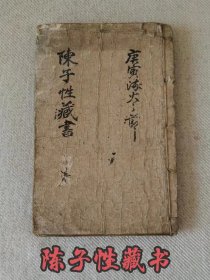 庚寅
陳子性藏書
陈子性藏书